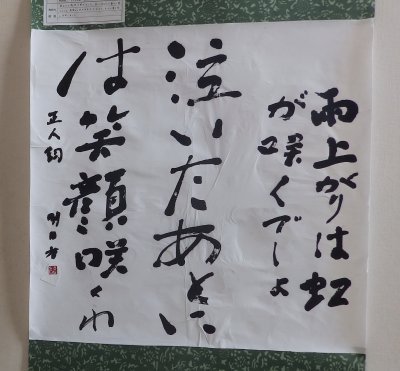 雨上がりは虹
が咲くでしょ
泣いたあとに
は笑顔咲くわ
正人詞